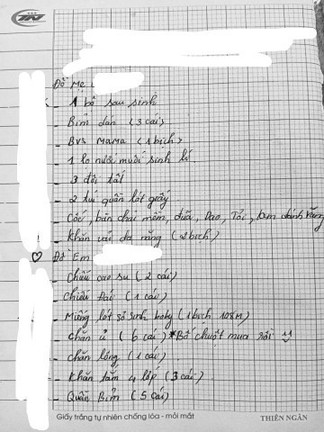 Đồ Mẹ
- 1 bộ sau sinh
- Bỉm dán (3 cái)
- BVS MAMA (1 bịch)
- 1 lọ nước muối sinh lí
- 3 đôi tất
- 2 túi quần lót giấy
- Cốc, bàn chải mềm, đũa, Dao, Tỏi, răng
- Khăn vải đa năng (2 bịch)
Đồ Em
- Chiếu cao su (2 cái)
- Chiếu Đái (1 cái)
- Miếng lót sơ sinh boby (1 bịch 108M)
- Chăn ủ (6 cái) *Bố chuột mua rồi
- chăn lông (1 cái)
- Khăn tắm 4 lớp (3 cái)
- Quần Bỉm (5 cái)
Giấy trắng tự nhiên chống lóa - mỏi mắt THIÊN NGÂN